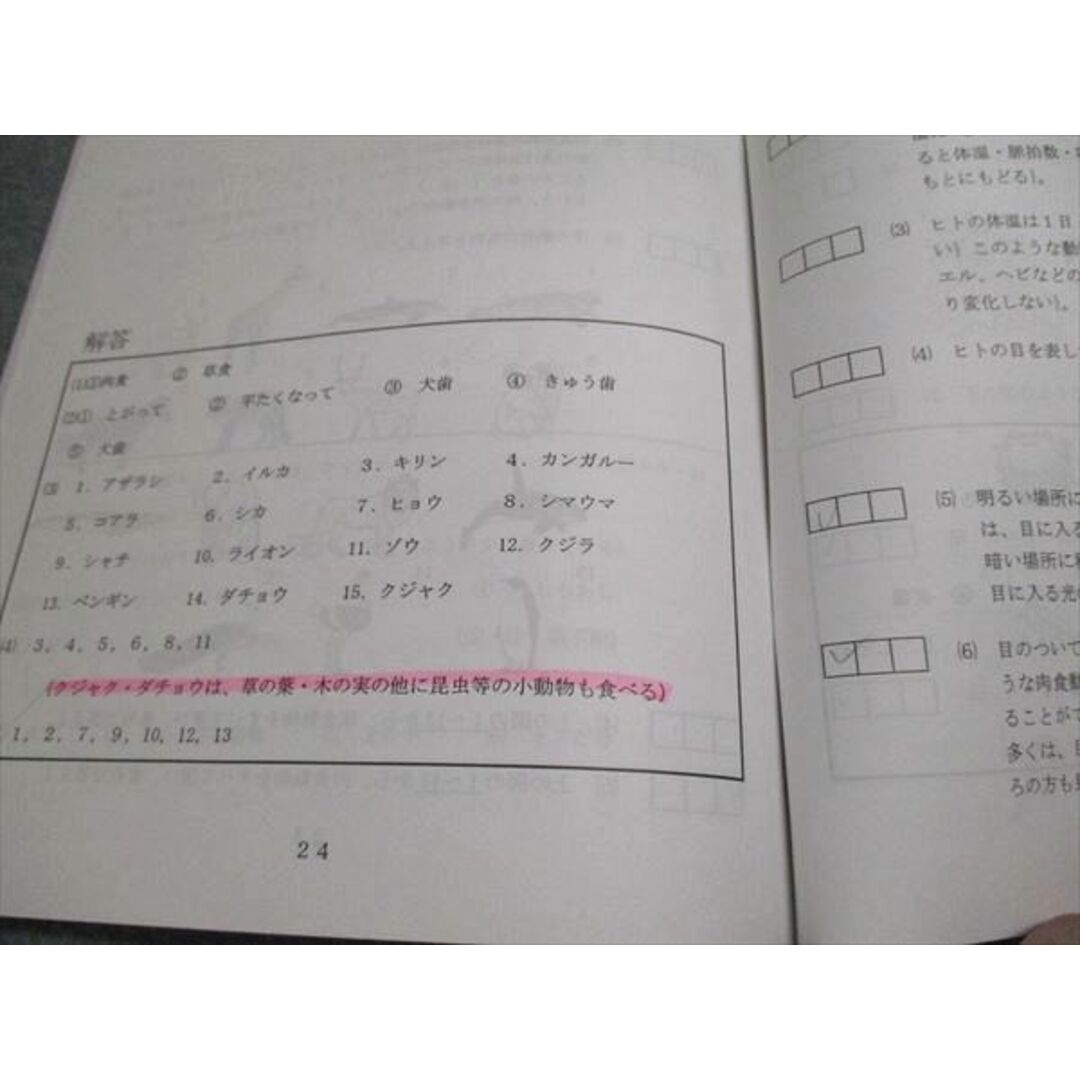 解答
(1)①肉食 ② 草食
(2)① とがって ② 平たくなって ③ 犬歯 ④ きゅう歯
⑤ 犬歯
(3) 1. アザラシ 2. イルカ 3. キリン 4. カンガルー
5. コアラ 6. シカ 7. ヒョウ 8. シマウマ
9. シャチ 10. ライオン 11. ゾウ 12. クジラ
13. ペンギン 14. ダチョウ 15. クジャク
(4) 3, 4, 5, 6, 8, 11
(クジャク・ダチョウは、草の葉・木の実の他に昆虫等の小動物も食べる)
1, 2, 7, 9, 10, 12, 13
24
ると体温・脈拍数・
もとにもどる)。
(3) ヒトの体温は1日
い) このような動
エル、ヘビなどの
り変化しない)。
(4) ヒトの目を表し
(5) 明るい場所に
は、目に入る
暗い場所に
目に入る光の
(6) 目のついて
うな肉食動
ることがで
多くは、
ろの方も見